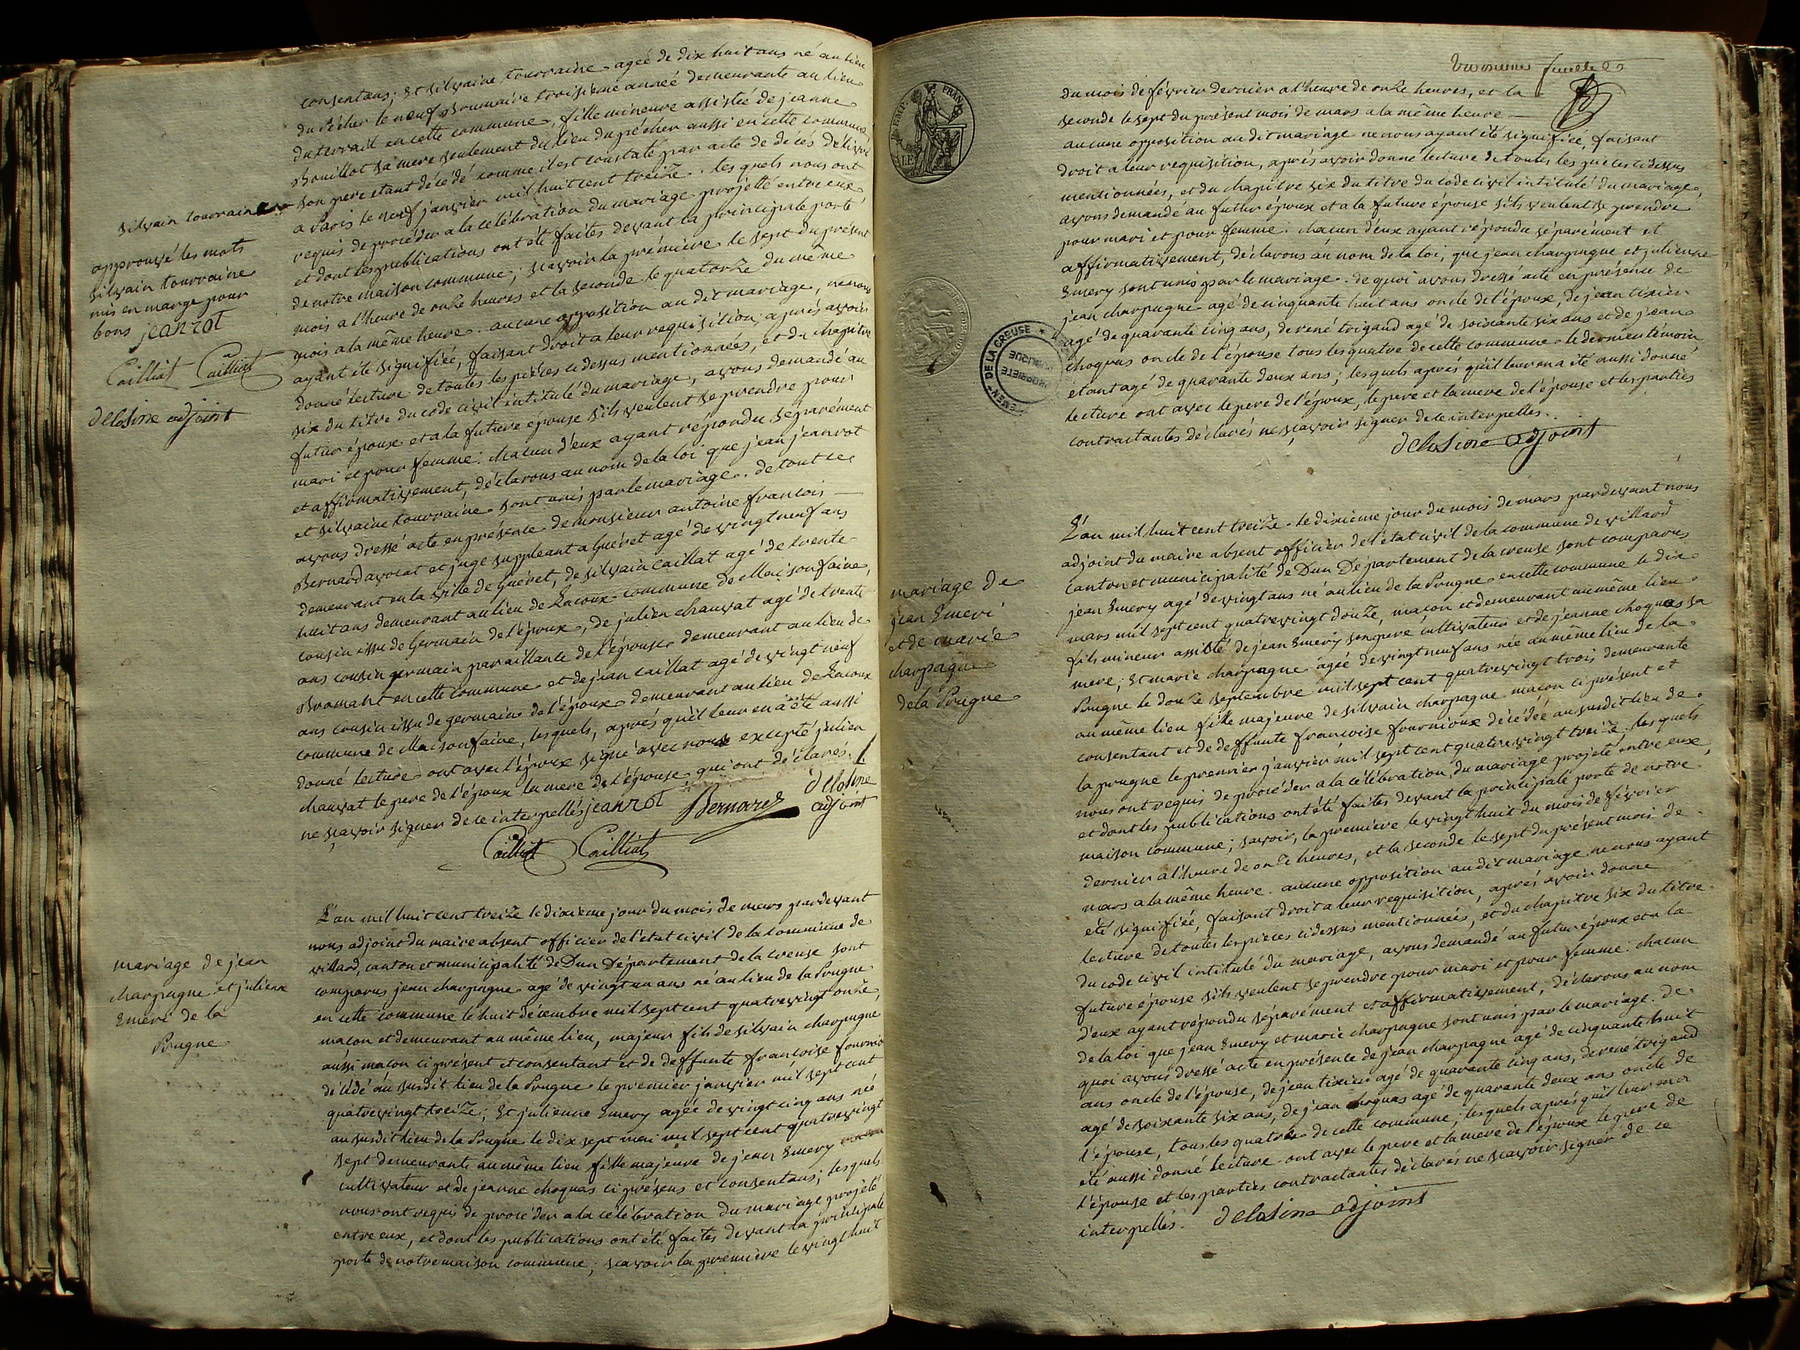 consentans; Et silvaine tourraine agée de dix huit ans né au lieu
du pécher le neuf Brumaire troisieme année demeurante au lieu
du terrail en cette commune, fille mineure assistée de jeanne
Bouillot sa mere seulement du lieu du pécher aussi en cette commune
son pere etant décédé comme il est constaté par acte de décés délivré
a Paris le neuf janvier mil huit cent treize. les quels nous ont
requis de procéder a la célébration du mariage projetté entre eux
et dont les publications ont été faites devant la principale porte
de notre maison commune; sçavoir la première le sept du présent
mois a l'heure de onze heures et la seconde le quatorze du même
mois a la même heure. aucune opposition au dit mariage, ne nous
ayant été signifiée, faisant droit a leur requisition, après avoir
donné lecture de toutes les pièces ci dessus mentionnées, et du chapitre
six du titre du code civil intitulé du mariage, avons demandé au
futur époux et a la future épouse s'ils veulent se prendre pour
mari et pour femme: chacun d'eux ayant répondu séparément
et affirmativement, déclarons au nom de la loi que jean jeanrot
et silvaine tourraine sont unis par le mariage. de tout ce
avons dressé acte en présence de monsieur antoine francois
Bernard avocat et juge suppleant a Guéret agé de vingt neuf ans
demeurant en la ville de Guéret, de silvain caillat agé de trente
huit ans demeurant au lieu de Lacoux commune de Maisonfaine,
cousin issu de Germain de l'époux, de julien chauvat agé de trente
ans cousin germain par aillante de l'épouse demeurant au lieu de
Bromant en cette commune et de jean caillat agé de vingt neuf
ans cousin issu de germains de l'époux demeurant au lieu de Lacoux
commune de Maisonfaine, lesquels, après qu'il leur en a été aussi
donné lecture ont avec l'époux signé avec nous excepté julien
chauvat le pere de l'époux la mere de l'épouse qui ont déclarés
ne sçavoir signer de ce interpellés jeanrot Bernard delasine adjoint
Cailliat Cailliat
silvain tourraine
approuvé les mots
silvain tourraine
mis en marge pour
bons jeanrot
Cailliat Cailliat
delasine adjoint
mariage de jean
charpagne et juliene
Emeri de la
Pougne
L'an mil huit cent treize le dixieme jour du mois de mars pardevant
nous adjoint du maire absent officier de l'etat civil de la commune de
villard, canton et municipalité de Dun Département de la creuse sont
comparus jean charpagne agé de vingt un ans né au lieu de la Pougne
en cette commune le huit décembre mil sept cent quatrevingt onze,
macon et demeurant au même lieu, majeur fils de silvain charpagne
aussi macon ci présent et consentant et de deffunte francoise fournio
décédé au susdit lieu de la Pougne le premier janvier mil sept cent
quatrevingt treize; Et julienne Emery agée de vingt cinq ans né
au susdit lieu de la Pougne le dix sept mai mil sept cent quatrevingt
sept demeurante au même lieu fille majeure de jean Emery
cultivateur et de jeanne choquas ci présens et consentans; lesquels
nous ont requis de procéder a la célébration du mariage projeté
entre eux, et dont les publications ont été faites devant la principale
porte de notre maison commune; sçavoir la première le vingt huit
feuille
du mois de février dernier a l'heure de onze heures, et la
seconde le sept du présent mois de mars a la même heure
aucune opposition au dit mariage ne nous ayant été signifiée, faisant
droit a leur requisition, après avoir donné lecture de toutes les pièces ci dessus
mentionnées, et du chapitre six du titre du code civil intitulé du mariage,
avons demandé au futur époux et a la future épouse s'ils veulent se prendre
pour mari et pour femme: chacun d'eux ayant répondu séparément et
affirmativement, déclarons au nom de la loi, que jean charpagne et julienne
Emery sont unis par le mariage. de quoi avons dressé acte en présence de
jean charpagne agé de cinquante huit ans oncle de l'époux, de jean tixier
agé de quarante cinq ans, de rené trigaud agé de soixante six ans et de jean
choquas oncle de l'épouse tous les quatre de cette commune le dernier témoin
étant agé de quarante deux ans; lesquels après qu'il leur en a été aussi donné
lecture ont avec le pere de l'époux, le pere et la mere de l'épouse et les parties
contractantes déclarés ne sçavoir signer de ce interpellés.
delasine adjoint
DE LA CREUSE
PROPRIETE
PUBLIQUE
mariage de
jean Emeri
et de marie
charpagne
de la Pougne
L'an mil huit cent treize le dixième jour du mois de mars pardevant nous
adjoint du maire absent officier de l'état civil de la commune de villard
canton et municipalité de Dun Département de la creuse sont comparus
jean Emery agé de vingt ans né au lieu de la Pougne en cette commune le dix
mars mil sept cent quatrevingt douze, macon et demeurant au même lieu
fils mineur assisté de jean Emery son pere cultivateur et de jeanne choquas sa
mere; Et marie charpagne agée de vingt neuf ans née au même lieu de la
Pougne le douze septembre mil sept cent quatrevingt trois demeurante
au même lieu fille majeure de silvain charpagne macon ci présent et
consentant et de deffunte francoise fournioux décédée au susdit lieu de
la pougne le premier janvier mil sept cent quatrevingt treize. les quels
nous ont requis de procéder a la célébration du mariage projeté entre eux,
et dont les publications ont été faites devant la principale porte de notre
maison commune; savoir, la première le vingt huit du mois de février
dernier a l'heure de onze heures, et la seconde le sept du présent mois de
mars a la même heure. aucune opposition au dit mariage ne nous ayant
été signifiée, faisant droit a leur requisition, après avoir donné
lecture de toutes les pièces ci dessus mentionnées, et du chapitre six du titre
du code civil intitulé du mariage, avons demandé au futur époux et a la
future épouse s'ils veulent se prendre pour mari et pour femme: chacun
d'eux ayant répondu séparément et affirmativement, déclarons au nom
de la loi que jean Emery et marie charpagne sont unis par le mariage. de
quoi avons dressé acte en présence de jean charpagne agé de cinquante huit
ans oncle de l'épouse, de jean tixier agé de quarante cinq ans, de rené trigaud
agé de soixante six ans, de jean choquas agé de quarante deux ans oncle de
l'épouse, tous les quatre de cette commune; lesquels après qu'il leur en a
été aussi donné lecture ont avec le pere et la mere de l'époux le pere de
l'épouse et les parties contractantes déclarés ne sçavoir signer de ce
interpellés. delasine adjoint